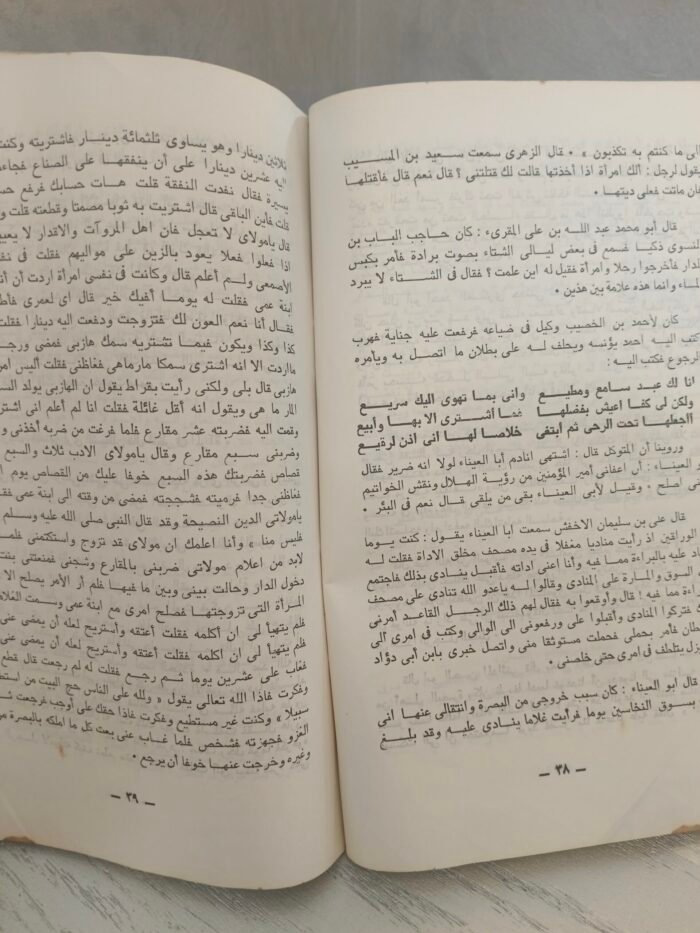 الى ما كنتم به تكذبون » . قال الزهرى سمعت سعيد بن المسيب
يقول لرجل : ألك امرأة اذا أخذتها قالت لك قتلتنى ؟ قال نعم قال فاقتلها
فان ماتت فعلى ديتها .
قال أبو محمد عبد الله بن على المقرىء : كان حاجب الباب بن
النسوى ذكيا فسمع فى بعض ليالى الشتاء بصوت برادة فأمر بكبس
الدار فأخرجوا رجلا وامرأة فقيل له اين علمت ؟ فقال فى الشتاء لا يبرد
الماء وانما هذه علامة بين هذين .
كان لأحمد بن الخصيب وكيل فى ضياعه فرفعت عليه جناية فهرب
فكتب اليه احمد يؤنسه ويحلف له على بطلان ما اتصل به ويأمره
الرجوع فكتب اليه :
انا لك عبد سامع ومطيع وانى بما تهوى اليك سريع
ولكن لى كفا اعيش بفضلها فما أشترى الا بها وأبيع
اجعلها تحت الرحى ثم ابتغى خلاصا لها انى اذن لرقيع
وروينا أن المتوكل قال : اشتهى انادم أبا العيناء لولا انه ضرير فقال
العيناء : أن اعفانى أمير المؤمنين من رؤية الهلال ونقش الخواتيم
نى اصلح . وقيل لأبى العيناء بقى من يلقى قال نعم فى البئر .
قال على بن سليمان الاخفش سمعت ابا العيناء يقول : كنت يوما
الوراقين اذ رأيت مناديا مغفلا فى يده مصحف مخلق الاداة فقلت له
ناد عليه بالبراءة مما فيه وأنا اعنى اداته فأقبل ينادى بذلك فاجتمع
السوق والمارة على المنادى وقالوا له ياعدو الله تنادى على مصحف
راءة مما فيه ! قال وأوقعوا به فقال لهم ذلك الرجل القاعد أمرنى
ك فتركوا المنادى وأقبلوا على ورفعونى الى الوالى وكتب فى امرى الى
طان فأمر بحملى فحملت مستوثقا منى واتصل خبرى بابن أبى دؤاد
يزل يتلطف فى امرى حتى خلصنى .
قال ابو العيناء : كان سبب خروجى من البصرة وانتقالى عنها انى
بسوق النخاسين يوما فرأيت غلاما ينادى عليه وقد بلغ
— ٣٨ —
ثلاثين دينارا وهو يساوى ثلثمائة دينار فاشتريته وكنت
اليه عشرين دينارا على أن ينفقها على الصناع فجاءن
يسيرة فقال نفدت النفقة قلت هات حسابك فرفع حس
قلت فاين الباقى قال اشتريت به ثوبا مصمتا وقطعته قلت و
قال يامولاى لا تعجل فان اهل المروآت والاقدار لا يعيب
اذا فعلوا فعلا يعود بالزين على مواليهم فقلت فى نفس
الأصمعى ولم أعلم قال وكانت فى نفسى امرأة اردت أن أتز
ابنة عمى فقلت له يوما أفيك خير قال اى لعمرى فأط
فقال أنا نعم العون لك فتزوجت ودفعت اليه دينارا فقلت
كذا وكذا ويكون فيما تشتريه سمك هازبى فمضى ورج
مااردت الا انه اشترى سمكا مارماهى فغاظنى فقلت أليس امر
هازبى قال بلى ولكنى رأيت بقراط يقول ان الهازبى يولد الس
المار ما هى ويقول انه أقل غائلة فقلت انا لم أعلم انى اشتر
وقمت اليه فضربته عشر مقارع فلما فرغت من ضربه أخذنى و
وضربنى سبع مقارع وقال يامولاى الادب ثلاث والسبع
قصاص فضربتك هذه السبع خوفا عليك من القصاص يوم ا
فغاظنى جدا فرميته فشججته فمضى من وقته الى ابنة عمى فق
يامولاتى الدين النصيحة وقد قال النبى صلى الله عليه وسلم
فليس منا » وأنا اعلمك ان مولاى قد تزوج واستكتمنى فلم
لابد من اعلام مولاتى ضربنى بالمقارع وشجنى فمنعتنى بنت
دخول الدار وحالت بينى وبين ما فيها فلم أر الأمر يصلح الا
المرأة التى تزوجتها فصلح امرى مع ابنة عمى وسمت الغلام
فلم يتهيأ لى ان أكلمه فقلت أعتقه وأستريح لعله أن يمضى عنى
فلم يتهيأ لى ان اكلمه فقلت أعتقه وأستريح لعله أن يمضى عنى
فغاب على عشرين يوما ثم رجع فقلت له لم رجعت قال قطع
وفكرت فاذا الله تعالى يقول « ولله على الناس حج البيت من استط
سبيلا » وكنت غير مستطيع وفكرت فاذا حقك على أوجب فرجعت ثم
الغزو فجهزته فشخص فلما غاب عنى بعت كل ما املكه بالبصرة م
وغيره وخرجت عنها خوفا أن يرجع .
— ٣٩ —